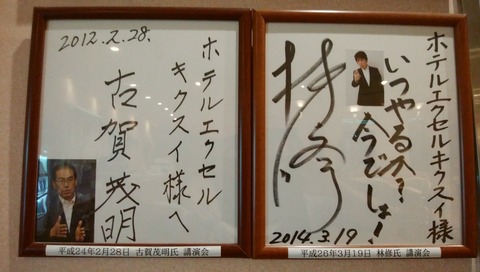 2012.2.28.
ホテルエクセル
キクスイ様へ
古賀茂明
平成24年2月28日 古賀茂明氏 講演会
ホテルエクセルキクスイ様
いつやるか?
今でしょ!
林修
2014.3.19
平成26年3月19日 林修氏 講演会